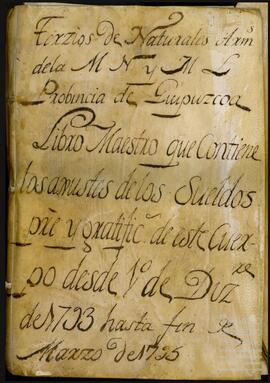 Terzios de Naturales Arm.s
de la M N y M L
Probincia de Guipuzcoa
Libro Maestro que Contiene
los ajustes de los Sueldos
pre y gratific.n de este Cuer-
po desde 1.o de Diz.re
de 1793 hasta fin de
Marzo de 1795